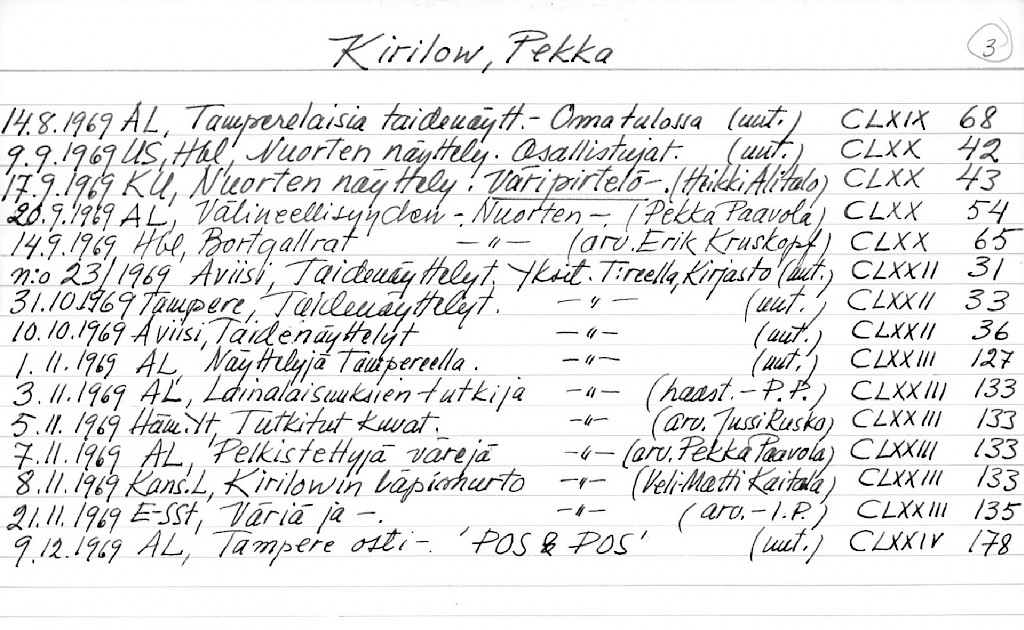 Kirilow, Pekka 3
14.8.1969 AL, Tamperelaisia taidenäytt.- Oma tulossa (uut.) CLXIX 68
9.9.1969 US, Hbl, Nuorten näyttely. Osallistujat. (uut.) CLXX 42
17.9.1969 KU, Nuorten näyttely. Väripirtelö-. (Heikki Alitalo) CLXX 43
20.9.1969 AL, Välineellisyyden - Nuorten - (Pekka Paavola) CLXX 54
14.9.1969 Hbl, Bortgallrat -"- (arv. Erik Kruskopf) CLXX 65
n:o 23/1969 Aviisi, Taidenäyttelyt, Yksit. T:reella, Kirjasto (uut.) CLXXII 31
31.10.1969 Tampere, Taidenäyttelyt. -"- (uut.) CLXXII 33
10.10.1969 Aviisi, Taidenäyttelyt -"- (uut.) CLXXII 36
1.11.1969 AL, Näyttelyjä Tampereella. -"- (uut.) CLXXIII 127
3.11.1969 AL, Lainalaisuuksien tutkija -"- (haast. - P.P.) CLXXIII 133
5.11.1969 Häm.Yt, Tutkitut kuvat. -"- (arv. Jussi Rusko) CLXXIII 133
7.11.1969 AL, Pelkistettyjä värejä -"- (arv. Pekka Paavola) CLXXIII 133
8.11.1969 Kans.L, Kirilowin läpimurto -"- (Veli-Matti Kaitala) CLXXIII 133
21.11.1969 E-SSt, Väriä ja -. -"- (arv. - I.P.) CLXXIII 135
9.12.1969 AL, Tampere osti -. 'POS & POS' (uut.) CLXXIV 178